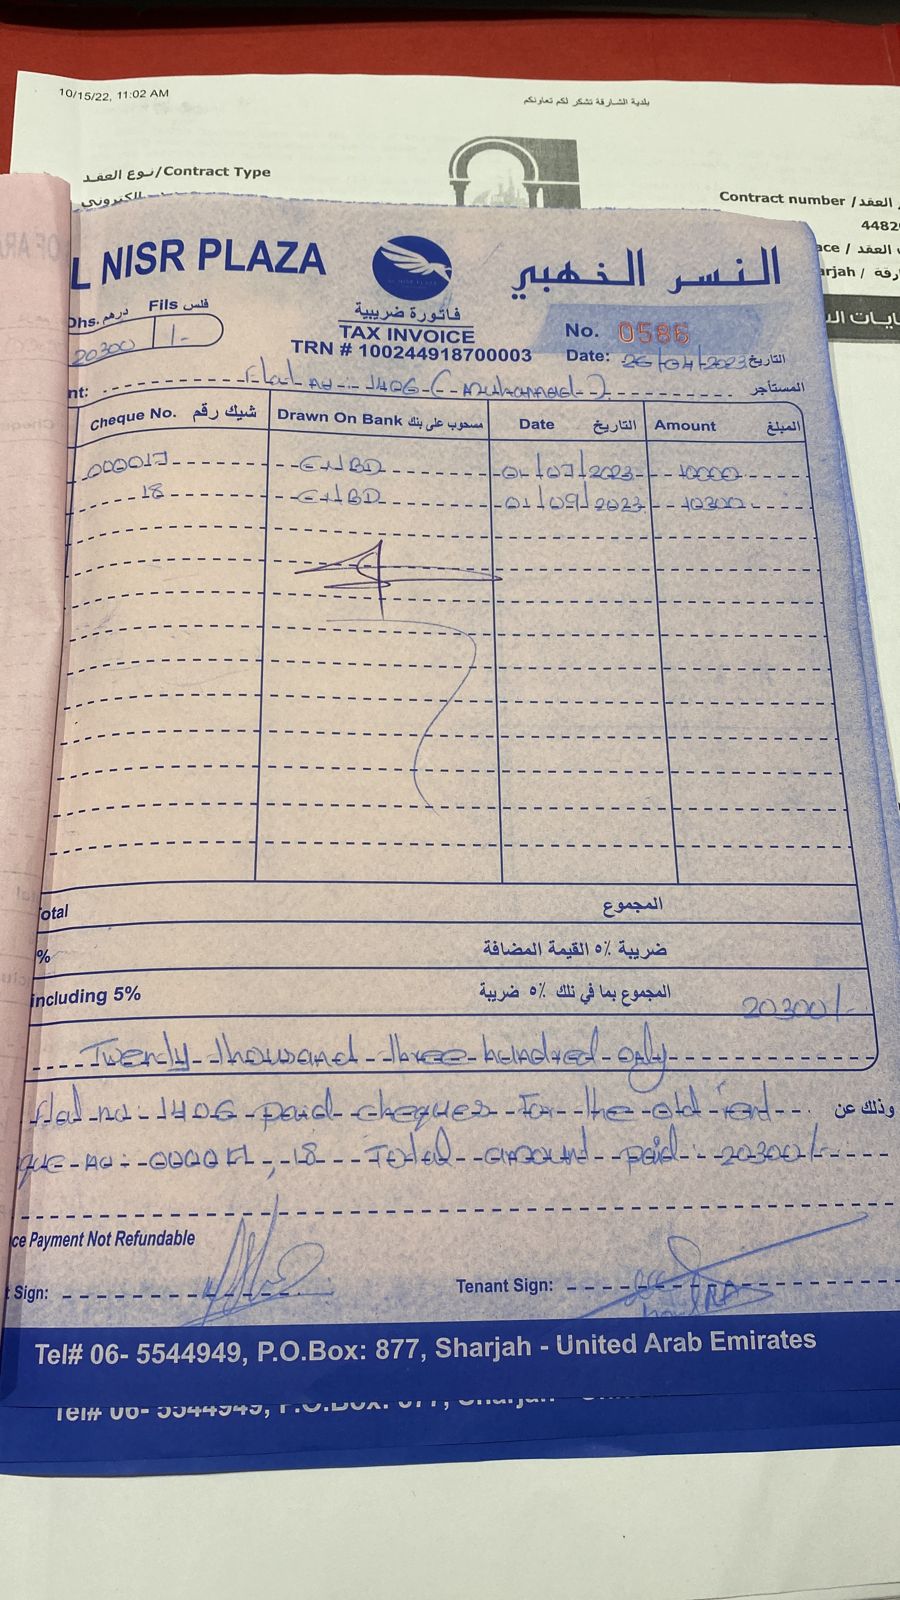 10/15/22, 11:02 AM
بلدية الشارقة تشكر لكم تعاونكم
نوع العقد/Contract Type
Contract number / العقد
4482
العقد /
rjah / رقة
L NISR PLAZA
النسر الذهبي
Dhs. درهم Fils فلس
20300 /-
فاتورة ضريبية
TAX INVOICE
TRN # 100244918700003
No. 0586
Date: 26/04/2023 التاريخ
nt: Flat no. 1406 (Muhammad) المستأجر
Cheque No. شيك رقم Drawn On Bank مسحوب على بنك Date التاريخ Amount المبلغ
000017 ENBD 01/07/2023 10000
18 ENBD 01/09/2023 10300
otal المجموع
% ضريبة ٥٪ القيمة المضافة
including 5% المجموع بما في ذلك ٥٪ ضريبة 20300/-
Twenty thousand three hundred only
flat no. 1406 paid cheques for the old rent وذلك عن
que no: 000017, 18 Total amount paid: 20300/-
ce Payment Not Refundable
Sign: Tenant Sign:
Tel# 06- 5544949, P.O.Box: 877, Sharjah - United Arab Emirates
Tel# 06- 5544949, P.O.Box: 877, Sharjah -